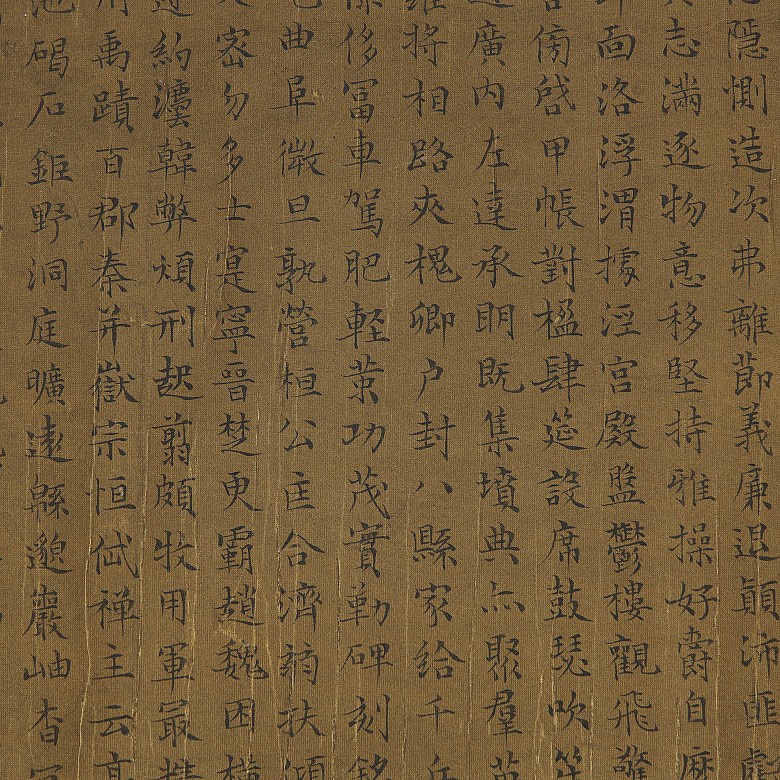 隱惻造次弗離節義廉退顛沛匪虧
志滿逐物意移堅持雅操好爵自縻
靣洛浮渭據涇宮殿盤鬱樓觀飛驚
傍啓甲帳對楹肆筵設席鼓瑟吹笙
廣內左達承明既集墳典亦聚羣英
將相路夾槐卿戶封八縣家給千兵
侈冨車駕肥軽策功茂實勒碑刻銘
曲阜微旦孰營桓公匡合濟弱扶傾
密勿多士寔寧晉楚更霸趙魏困橫
遵約灋韓弊煩刑起翦頗牧用軍最精
禹蹟百郡秦并嶽宗恒岱禅主云亭
池碣石鉅野洞庭曠遠緜邈巖岫杳冥